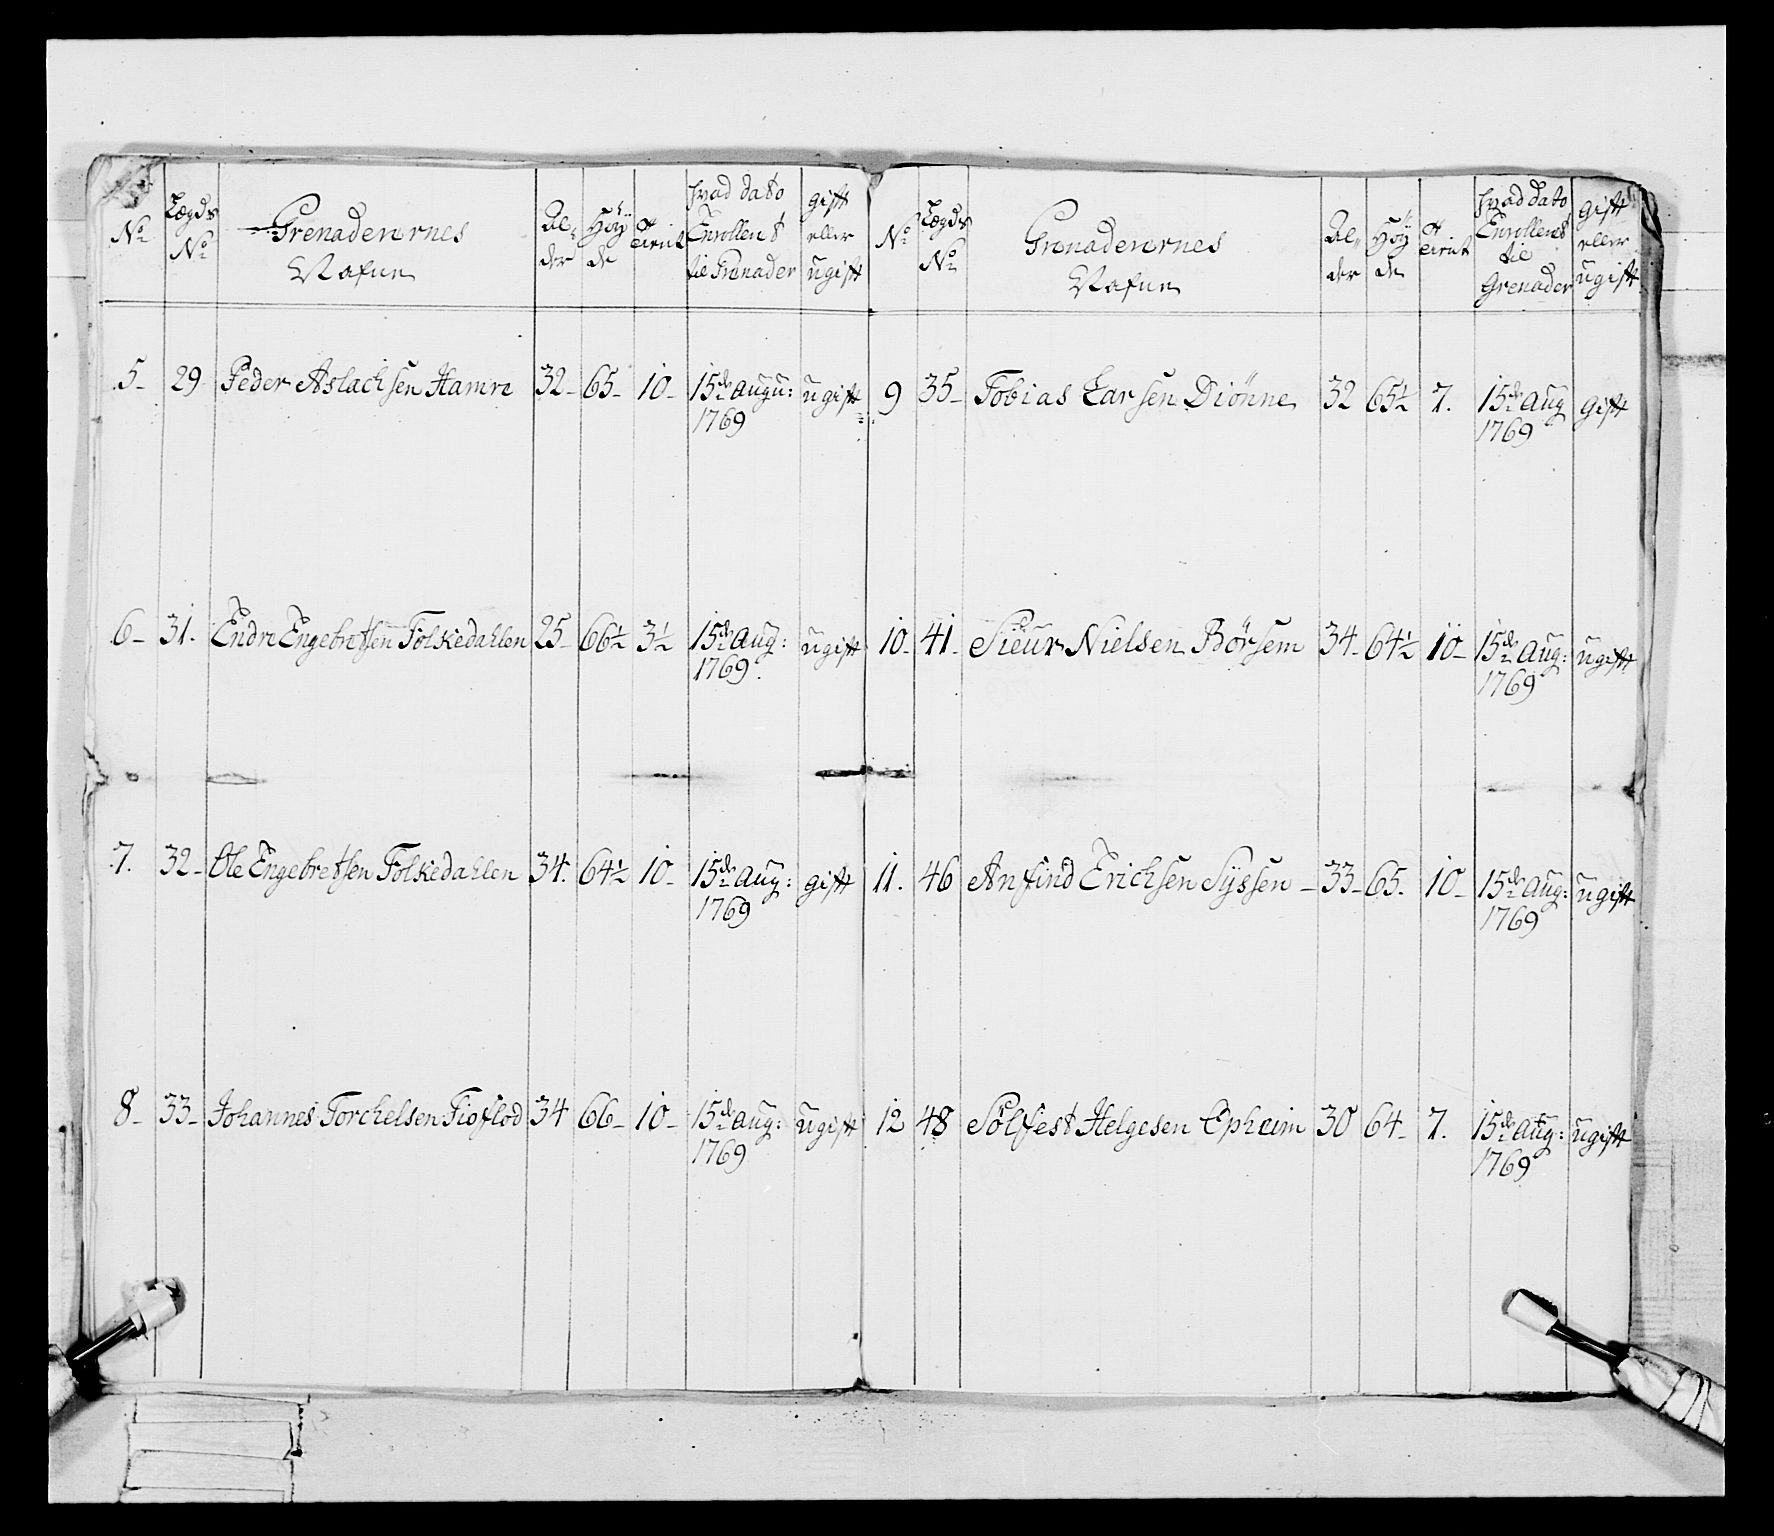 No	Lægds No	Grenaderernes Nafne	Al- der	Höy de	exercit	hvad dato Enrollert til Grenader	gift eller ugift
5-	29	Peder Aslachsen Hamre	32-	65-	10-	15de augu: 1769	ugift
6-	31.	Endre Engebretsen Folkedahlen	25	66½	3½	15de aug: 1769.	ugift
7.	32-	Ole Engebretsen Folkedahlen	34.	64½	10-	15de aug: 1769	gift
8-	33-	Johannes Torchelsen Fioflod	34	66-	10-	15de aug: 1769	ugift
No	Lægds No	Grenaderernes Nafne	Al- der	Höy de	exercit	hvad dato Enrollert til Grenader	gift eller ugift
9	35-	Tobias Larsen Diönne	32	65½	7.	15de aug 1769	gift
10-	41-	Sieur Nielsen Börsem	34-	64½	10-	15de aug: 1769	ugift
11.	46	Anfind Erichsen Syssen	33-	65.	10-	15de aug: 1769	ugift
12	48	Sölfest Helgesen Epheim	30	64-	7.	15de aug: 1769	ugift